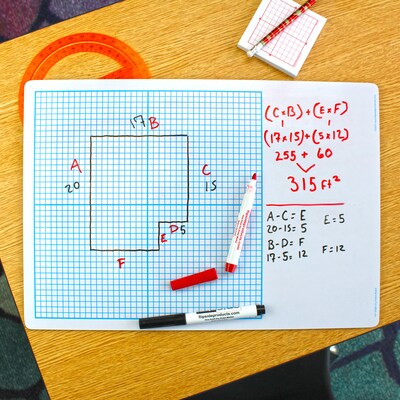 17 B
A
20
C
15
D 5
E
F
(C×B) + (E×F)
(17×15)+(5×12)
255 + 60
315 ft²
A-C= E E=5
20-15= 5
B-D= F
17-5= 12 F=12
flipsideproducts.com